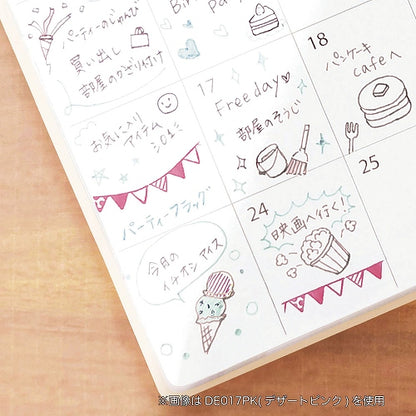 パーティーのじゅんび
買い出し
部屋のかざりつけ
お気に入り
アイテム
パーティーフラッグ
今月の
イチオシ アイス
17
Freeday♡
部屋のそうじ
18
パンケーキ
cafeへ
24
映画へ行く!
25
※画像は DE017PK( デザートピンク ) を使用